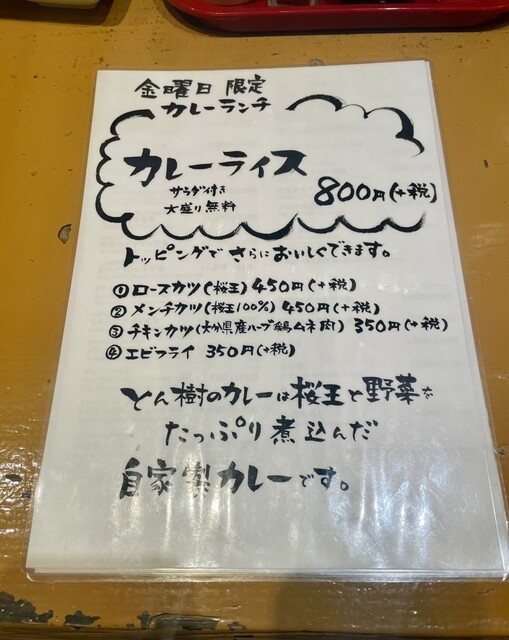 金曜日 限定
カレーランチ
カレーライス
サラダ付き
大盛り無料
800円(+税)
トッピングでさらにおいしくできます。
① ロースカツ(桜王) 450円(+税)
② メンチカツ(桜王100%) 450円(+税)
③ チキンカツ(大分県産ハーブ鶏ムネ肉) 350円(+税)
④ エビフライ 350円(+税)
とん樹のカレーは桜王と野菜を
たっぷり煮込んだ
自家製カレーです。